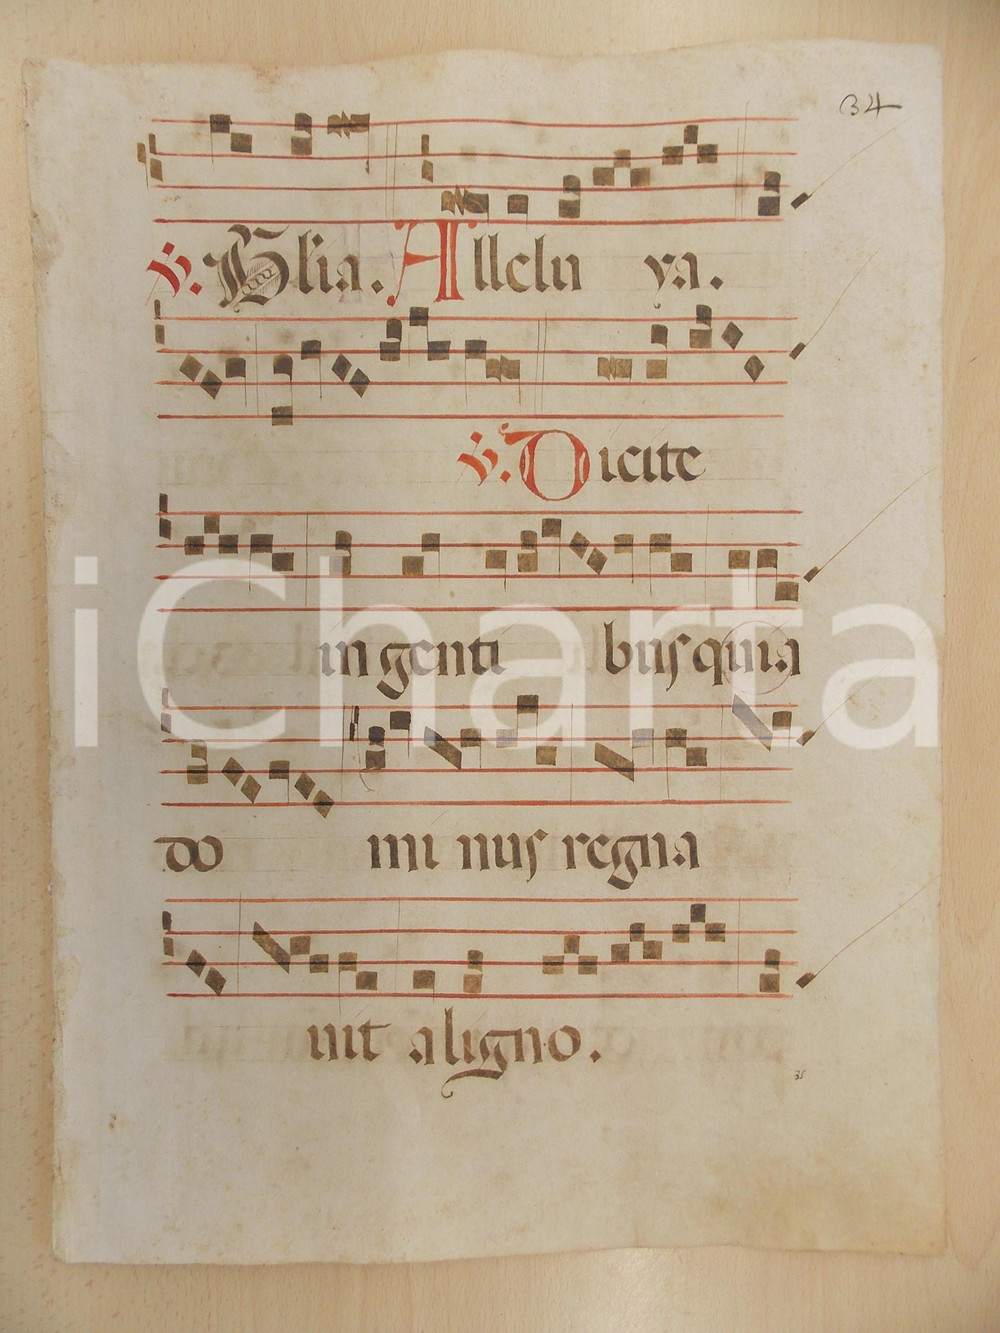 34
℣. Glia. Allelu ya.
℣. Dicite
in genti bus quia
do mi nus regna
uit a ligno.
35
iCharta